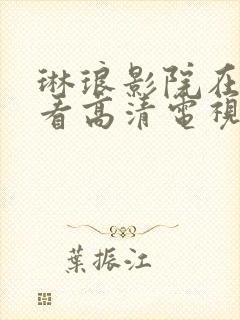 琳琅影院在
看高清電視
葉振江